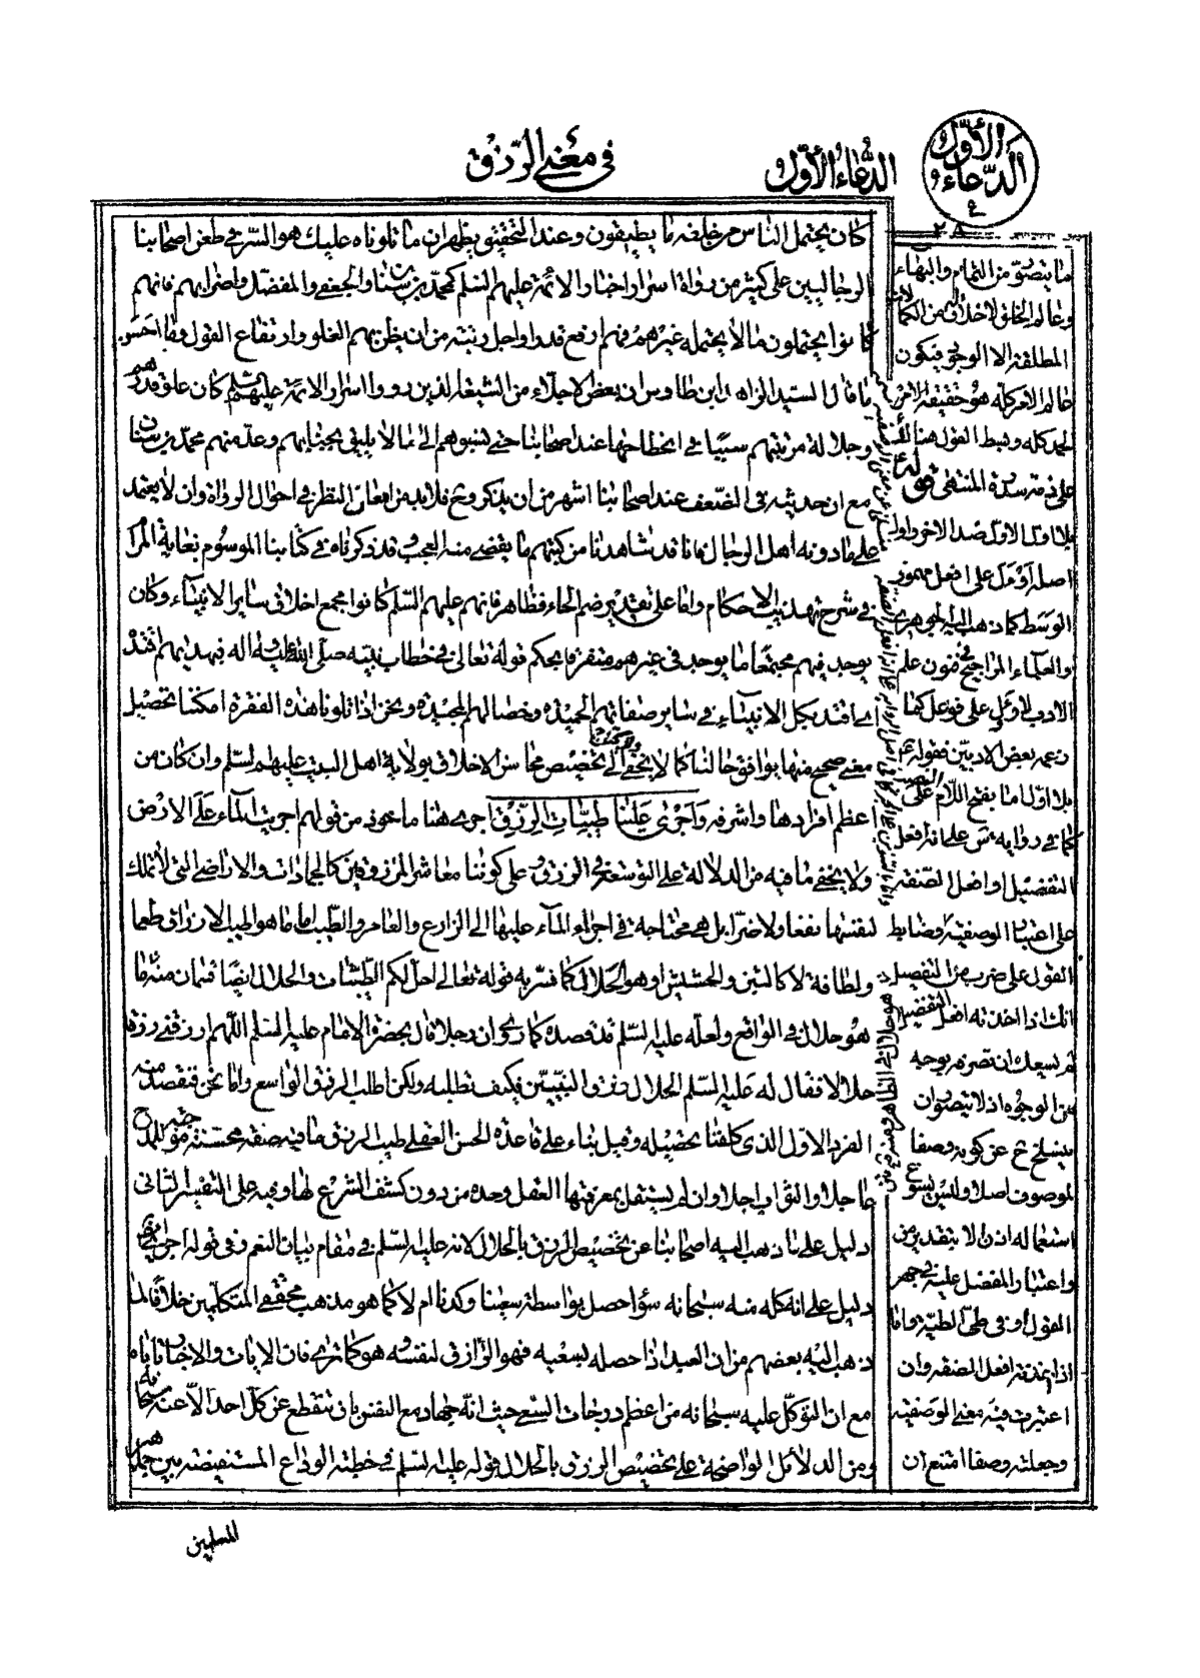 الدعاء الأول
٢٨
الدعاء الأول
في معنى الرزق
كان يحتمل الناس من خلفه ما يطيقون وعند التحقيق يظهر ان ما تلوناه عليك هو السر في طعن اصحابنا
الرجاليين على كثير من رواة اسرار اخبار الائمة عليهم السلم كمحمد بن سنان والجعفي والمفضل واضرابهم فانهم
كانوا يحتملون ما لا يحتمله غيرهم فهم ارفع قدرا واجل رتبة من ان يظن بهم الغلو وارتفاع القول وما احسن
ما قال السيد الزاهد ابن طاوس ان بعض الاجلاء من الشيعة الذين رووا اسرار الائمة عليهم السلم كان علو قدرهم
وجلالة مرتبتهم سببا في انحطاطها عند اصحابنا حتى نسبوهم الى ما لا يليق بجنابهم وعد منهم محمد بن سنان
مع ان حديثه في الضعف عند اصحابنا اشهر من ان يذكر وح فلا بد من امعان النظر في احوال الرواة وان لا يعتمد
على ما دونه اهل الرجال فانا قد شاهدنا من كتبهم ما يقضى منه العجب وقد ذكرناه في كتابنا الموسوم بغاية المرام
في شرح تهذيب الاحكام واما على تقدير ضم الخاء فظاهر فانهم عليهم السلم كانوا مجمع اخلاق ساير الانبياء وكان
يوجد فيهم مجتمعا ما يوجد في غيرهم متفرقا بحكم قوله تعالى في خطاب نبيه صلى الله عليه واله فبهديهم اقتده
اي اقتد بكل الانبياء في ساير صفاتهم الحميدة وخصالهم المجيدة ونحن اذا تلونا هذه الفقرة امكننا تحصيل
معنى صحيح منها يوافق حالنا كما لا يخفى تخصيص محاسن الاخلاق بولاية اهل البيت عليهم السلم وان كان من
اعظم افرادها واشرفه واجرى علينا طيبات الرزق اجرى هنا ماخوذ من قولهم اجريت الماء على الارض
ولا يخفى ما فيه من الدلالة على التوسعة في الرزق وعلى كوننا معاشر المرزوقين كالجمادات والاراضي التي لا تملك
لنفسها نفعا ولا ضرا بل هي محتاجة في اجراء الماء عليها الى الزارع والغامر والطيب اما ما هو اطيب الارزاق طعما
ولطافة لا كالتبن والحشيش او هو الحلال كما فسر به قوله تعالى احل لكم الطيبات والحلال ايضا قسمان منه ما
هو حلال في الواقع ولعله عليه السلم قد قصده كما روي ان رجلا قال بحضرة الامام عليه السلم اللهم ارزقني رزقا
حلالا فقال له عليه السلم الحلال رزق النبيين فكيف تطلبه ولكن اطلب الرزق الواسع واما نحن فنقصد منه
الفرد الاول الذي كلفنا تحصيله وقيل بناء على قاعدة الحسن العقلي طيب الرزق ما فيه صفة محسنة موجبة للمدح
عاجلا والثواب اجلا وان لم يستقل بمعرفتها العقل وحده من دون كشف الشرع لها وفيه على التفسير الثاني
دليل على ما ذهب اليه اصحابنا من تخصيص الرزق بالحلال لانه عليه السلم في مقام بيان النعم وفي قوله اجرى
دليل على انه كله منه سبحانه سواء حصل بواسطة سعينا وكدنا ام لا كما هو مذهب محققي المتكلمين خلافا لما
ذهب اليه بعضهم من ان العبد اذا حصله بسعيه فهو الرازق لنفسه وهو كما ترى فان الايات والاخبار تاباه
مع ان التوكل عليه سبحانه من اعظم درجات السعي حيث انه جهاد مع النفس بان تنقطع عن كل احد الا عنه سبحانه
ومن الدلائل الواضحة على تخصيص الرزق بالحلال قوله عليه السلم في خطبة الوداع المستفيضة بين جميع
المسلمين
ما يتصور من التمام والبهاء
وعالم الخلق لا خلاق من الكمالات
المطلقة الا الوجود فيكون
عالم الامر كله هو حقيقة الامر
الحمد كله وبسط القول هنا
على ذمة رسالة المنتقى قوله
بلا اول الاول ضد الاخر واول
اصله اوءل على افعل مهموز
الوسط كما ذهب اليه الجوهري
والعلماء المراجيح في فنون علم
الادب لا وءل على فوعل كما
زعمه بعض الادبيين فقوله
بلا اول اما بفتح اللام على
كما في رواية س على انه افعل
التفضيل او افعل الصفة
على اعتبار الوصفية وضابط
القول على ضرب من التفصيل
انك اذا اخذته افعل التفضيل
لم يسعك ان تصرفه بوجه
من الوجوه اذ لا يتصور ان
ينسلخ ح عن كونه وصفا
لموصوف اصلا وليس يسوغ
استعماله اذن الا بتقدير من
واعتبار المفضل عليه في جهر
القول او في طي الطية واما
اذا اخذته افعل الصفة وان
اعتبرت فيه معنى الوصفية
وجعلته وصفا امتنع ان